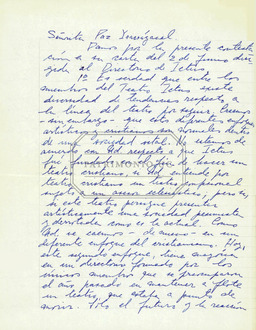 Señorita Paz Yrarrázaval
Damos por la presente contesta-
ción a su carta del 2 de Junio diri-
gida al Directorio de Ictus
1º Es verdad que entre los
miembros del Teatro Ictus existe
diversidad de tendencias respecto a
la línea del teatro por seguir. Creemos
- sin embargo - que estos diferentes enfoques
artísticos y cristianos son normales dentro
de una sociedad actual. No estamos de
acuerdo con Ud respecto a que Ictus
fue fundado con el fin de hacer un
teatro cristiano, si Ud entiende por
teatro cristiano un teatro confesional
sujeto a un marco eclesiástico, pero sí,
si este teatro persigue presentar
artísticamente una sociedad
y derrotada como es la actual. Como
Ud. ve caemos - de nuevo - en un
diferente enfoque del cristianismo. Hoy,
este segundo enfoque, tiene mayoría
en un directorio formado por los
mismos miembros que se preocuparon
el año pasado en mantener a flote
un teatro, que estaba a punto de
morir. Mas el futuro y la reacción